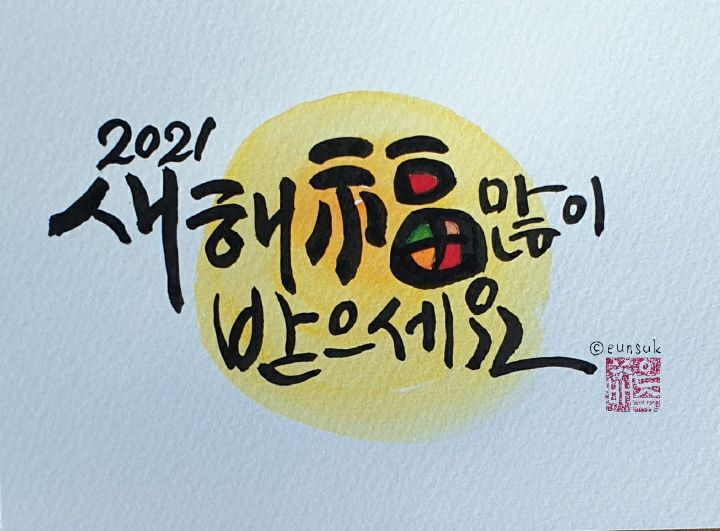 2021
새해福많이
받으세요
©eunsuk